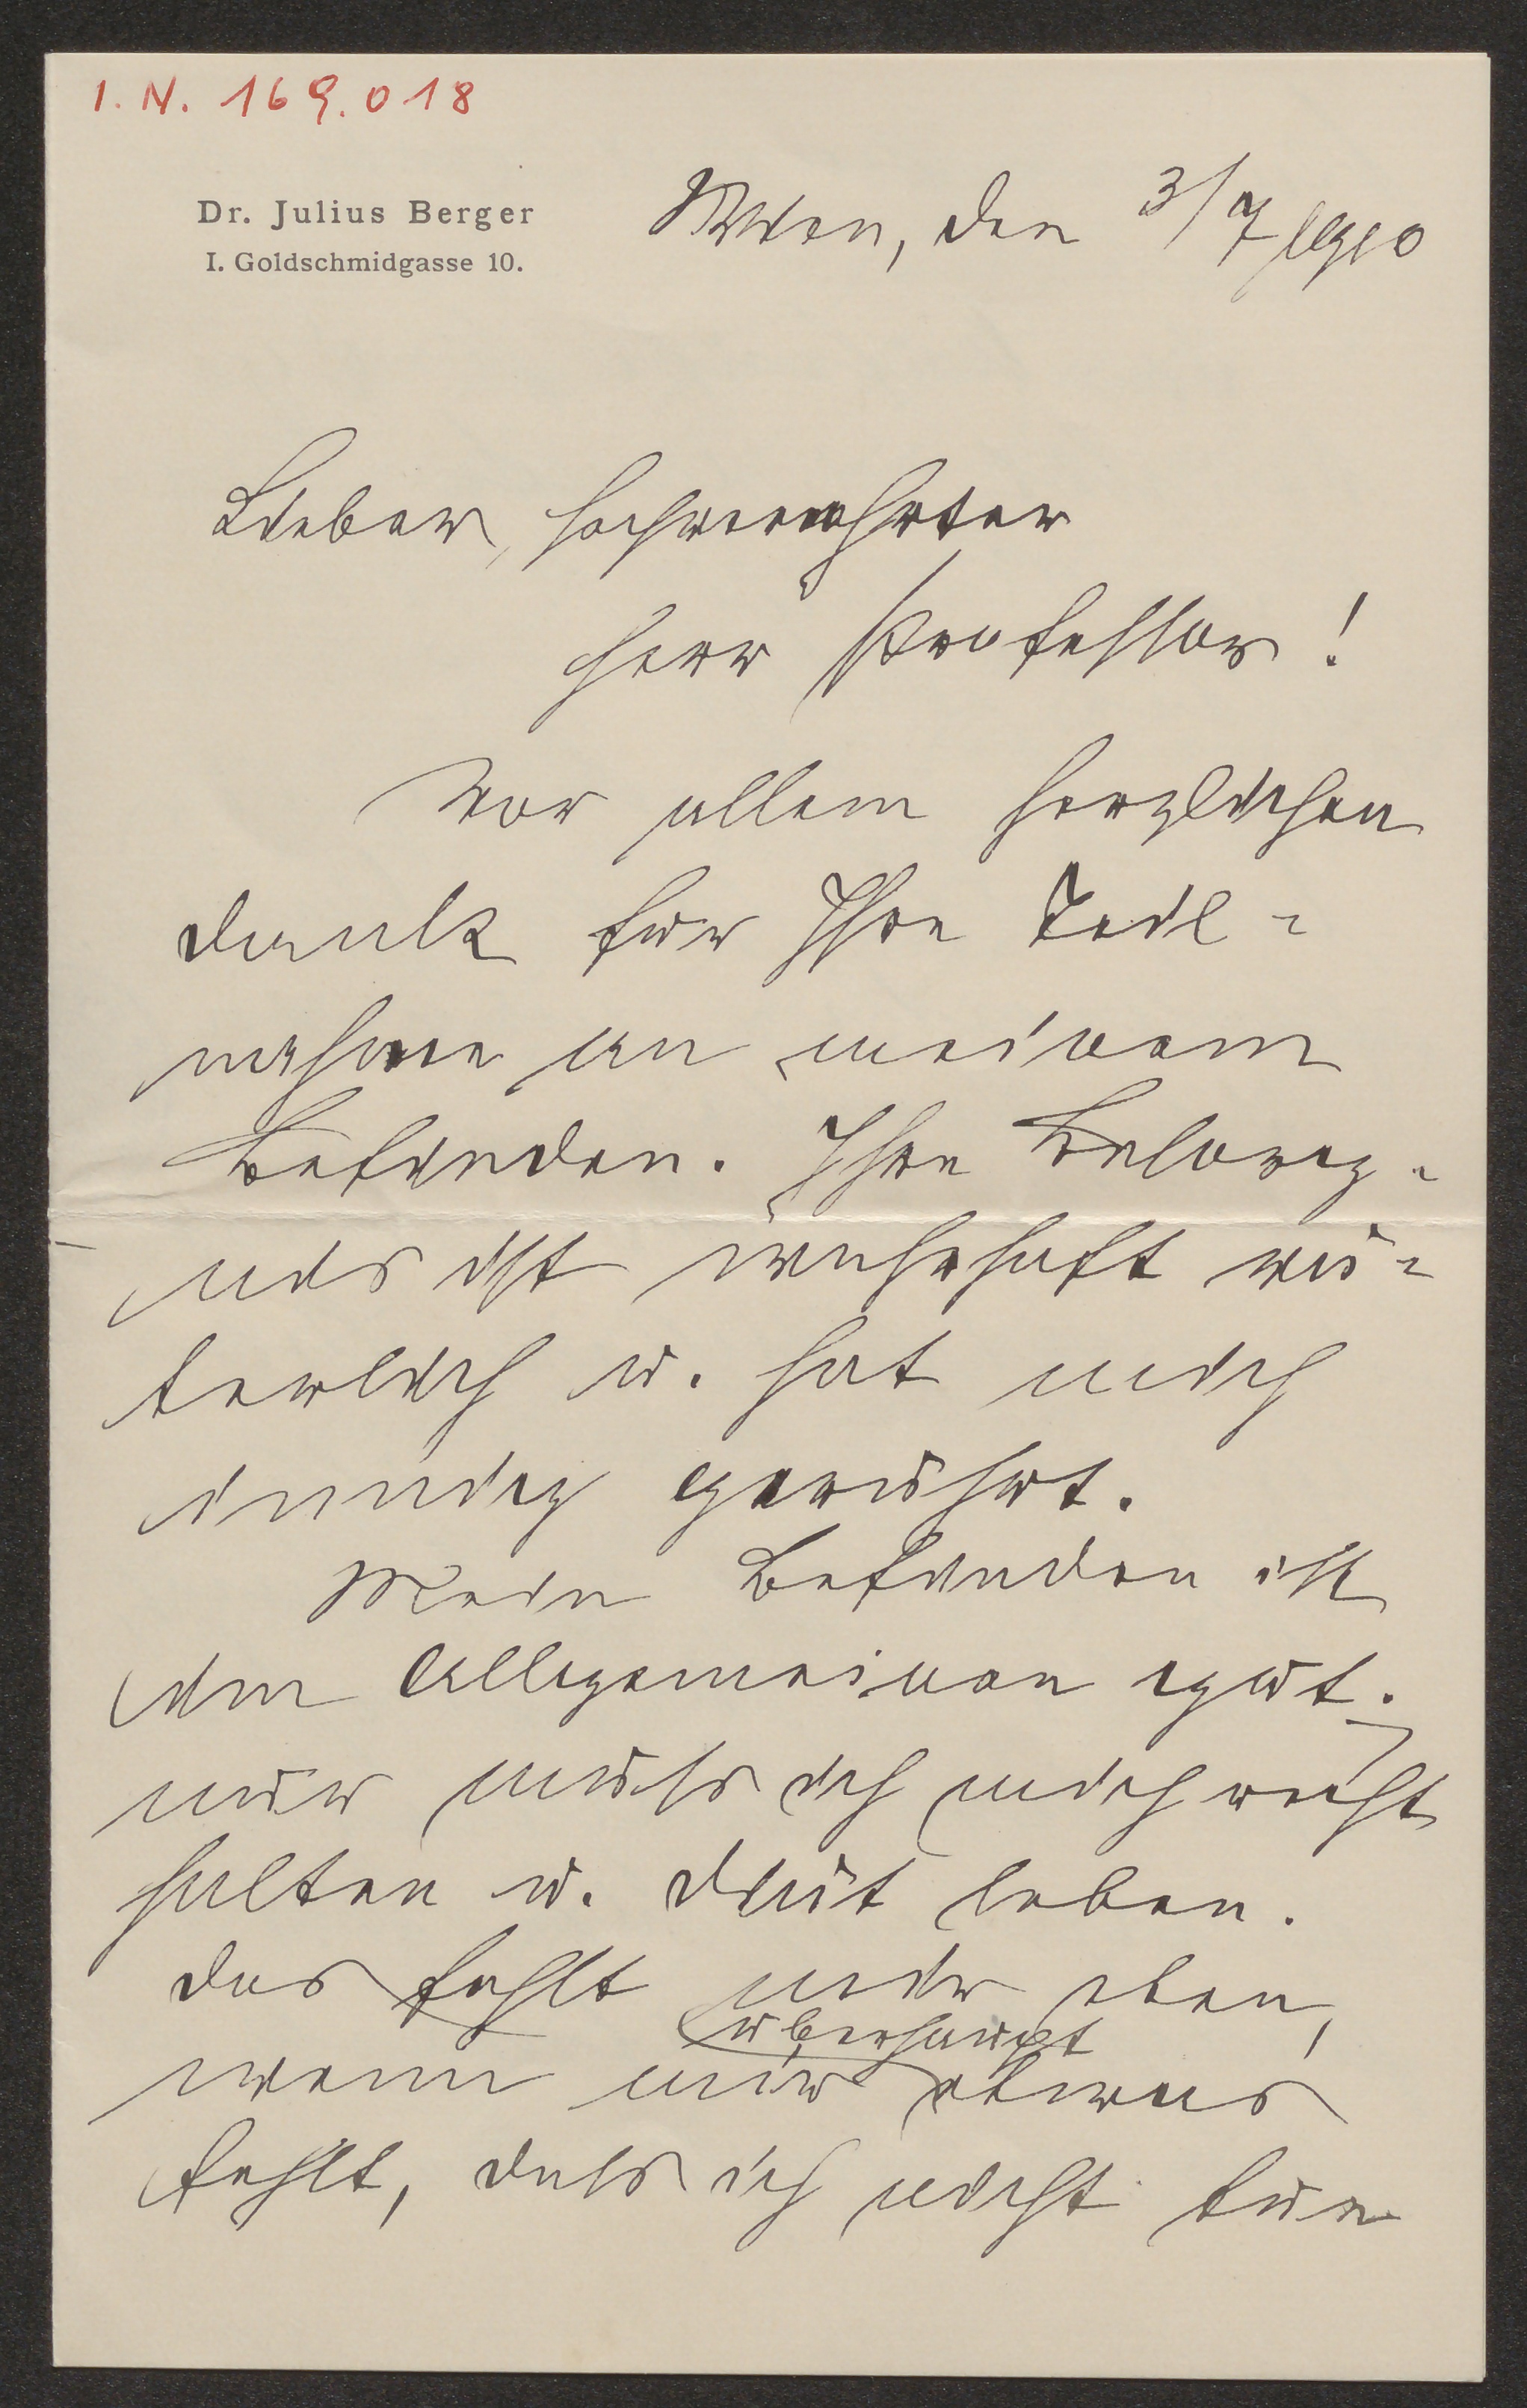 I. N. 169.018
Dr. Julius Berger
I. Goldschmidgasse 10.
Wien, den 3/7 1910
Lieber, hochverehrter
Herr Professor!
Vor allem herzlichen
Dank für Ihre Teil-
nahme an meinem
Befinden. Ihre Besorg-
nis ist wahrhaft vä-
terlich u. hat mich
innig gerührt.
Mein Befinden ist
im Allgemeinen gut;
nur muß ich mich recht
halten u. diät leben.
Das fehlt mir eben,
überhaupt
wenn mir etwas
fehlt, daß ich nicht tun